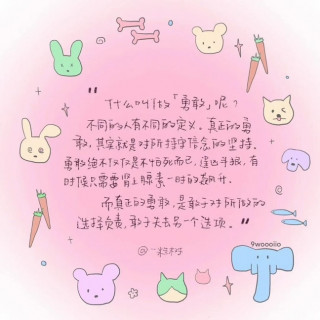 "
什么叫做「勇敢」呢？
不同的人有不同的定义。真正的勇
敢，其实就是对所持守信念的坚持。
勇敢绝不仅仅是不怕死而已，逞凶斗狠，有
时候只需要肾上腺素一时的飙升。
而真正的勇敢，是敢于对所做的
选择负责，敢于失去另一个选项。
"
9woooiio